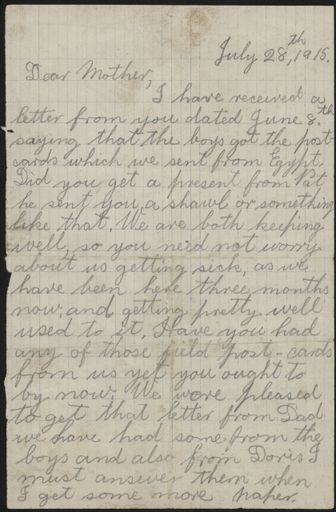 July 28,th 1915.
Dear Mother,
I have received a
letter from you dated June 8.th
saying that the boys got the post
cards which we sent from Egypt.
Did you get a present from Pat
he sent you a shawl or something
like that. We are both keeping
well, so you need not worry
about us getting sick, as we
have been here three months
now, and getting pretty well
used to it. Have you had
any of those field post-cards
from us yet you ought to
by now. We were pleased
to get that letter from Dad
we have had some from the
boys and also from Doris I
must answer them when
I get some more paper.